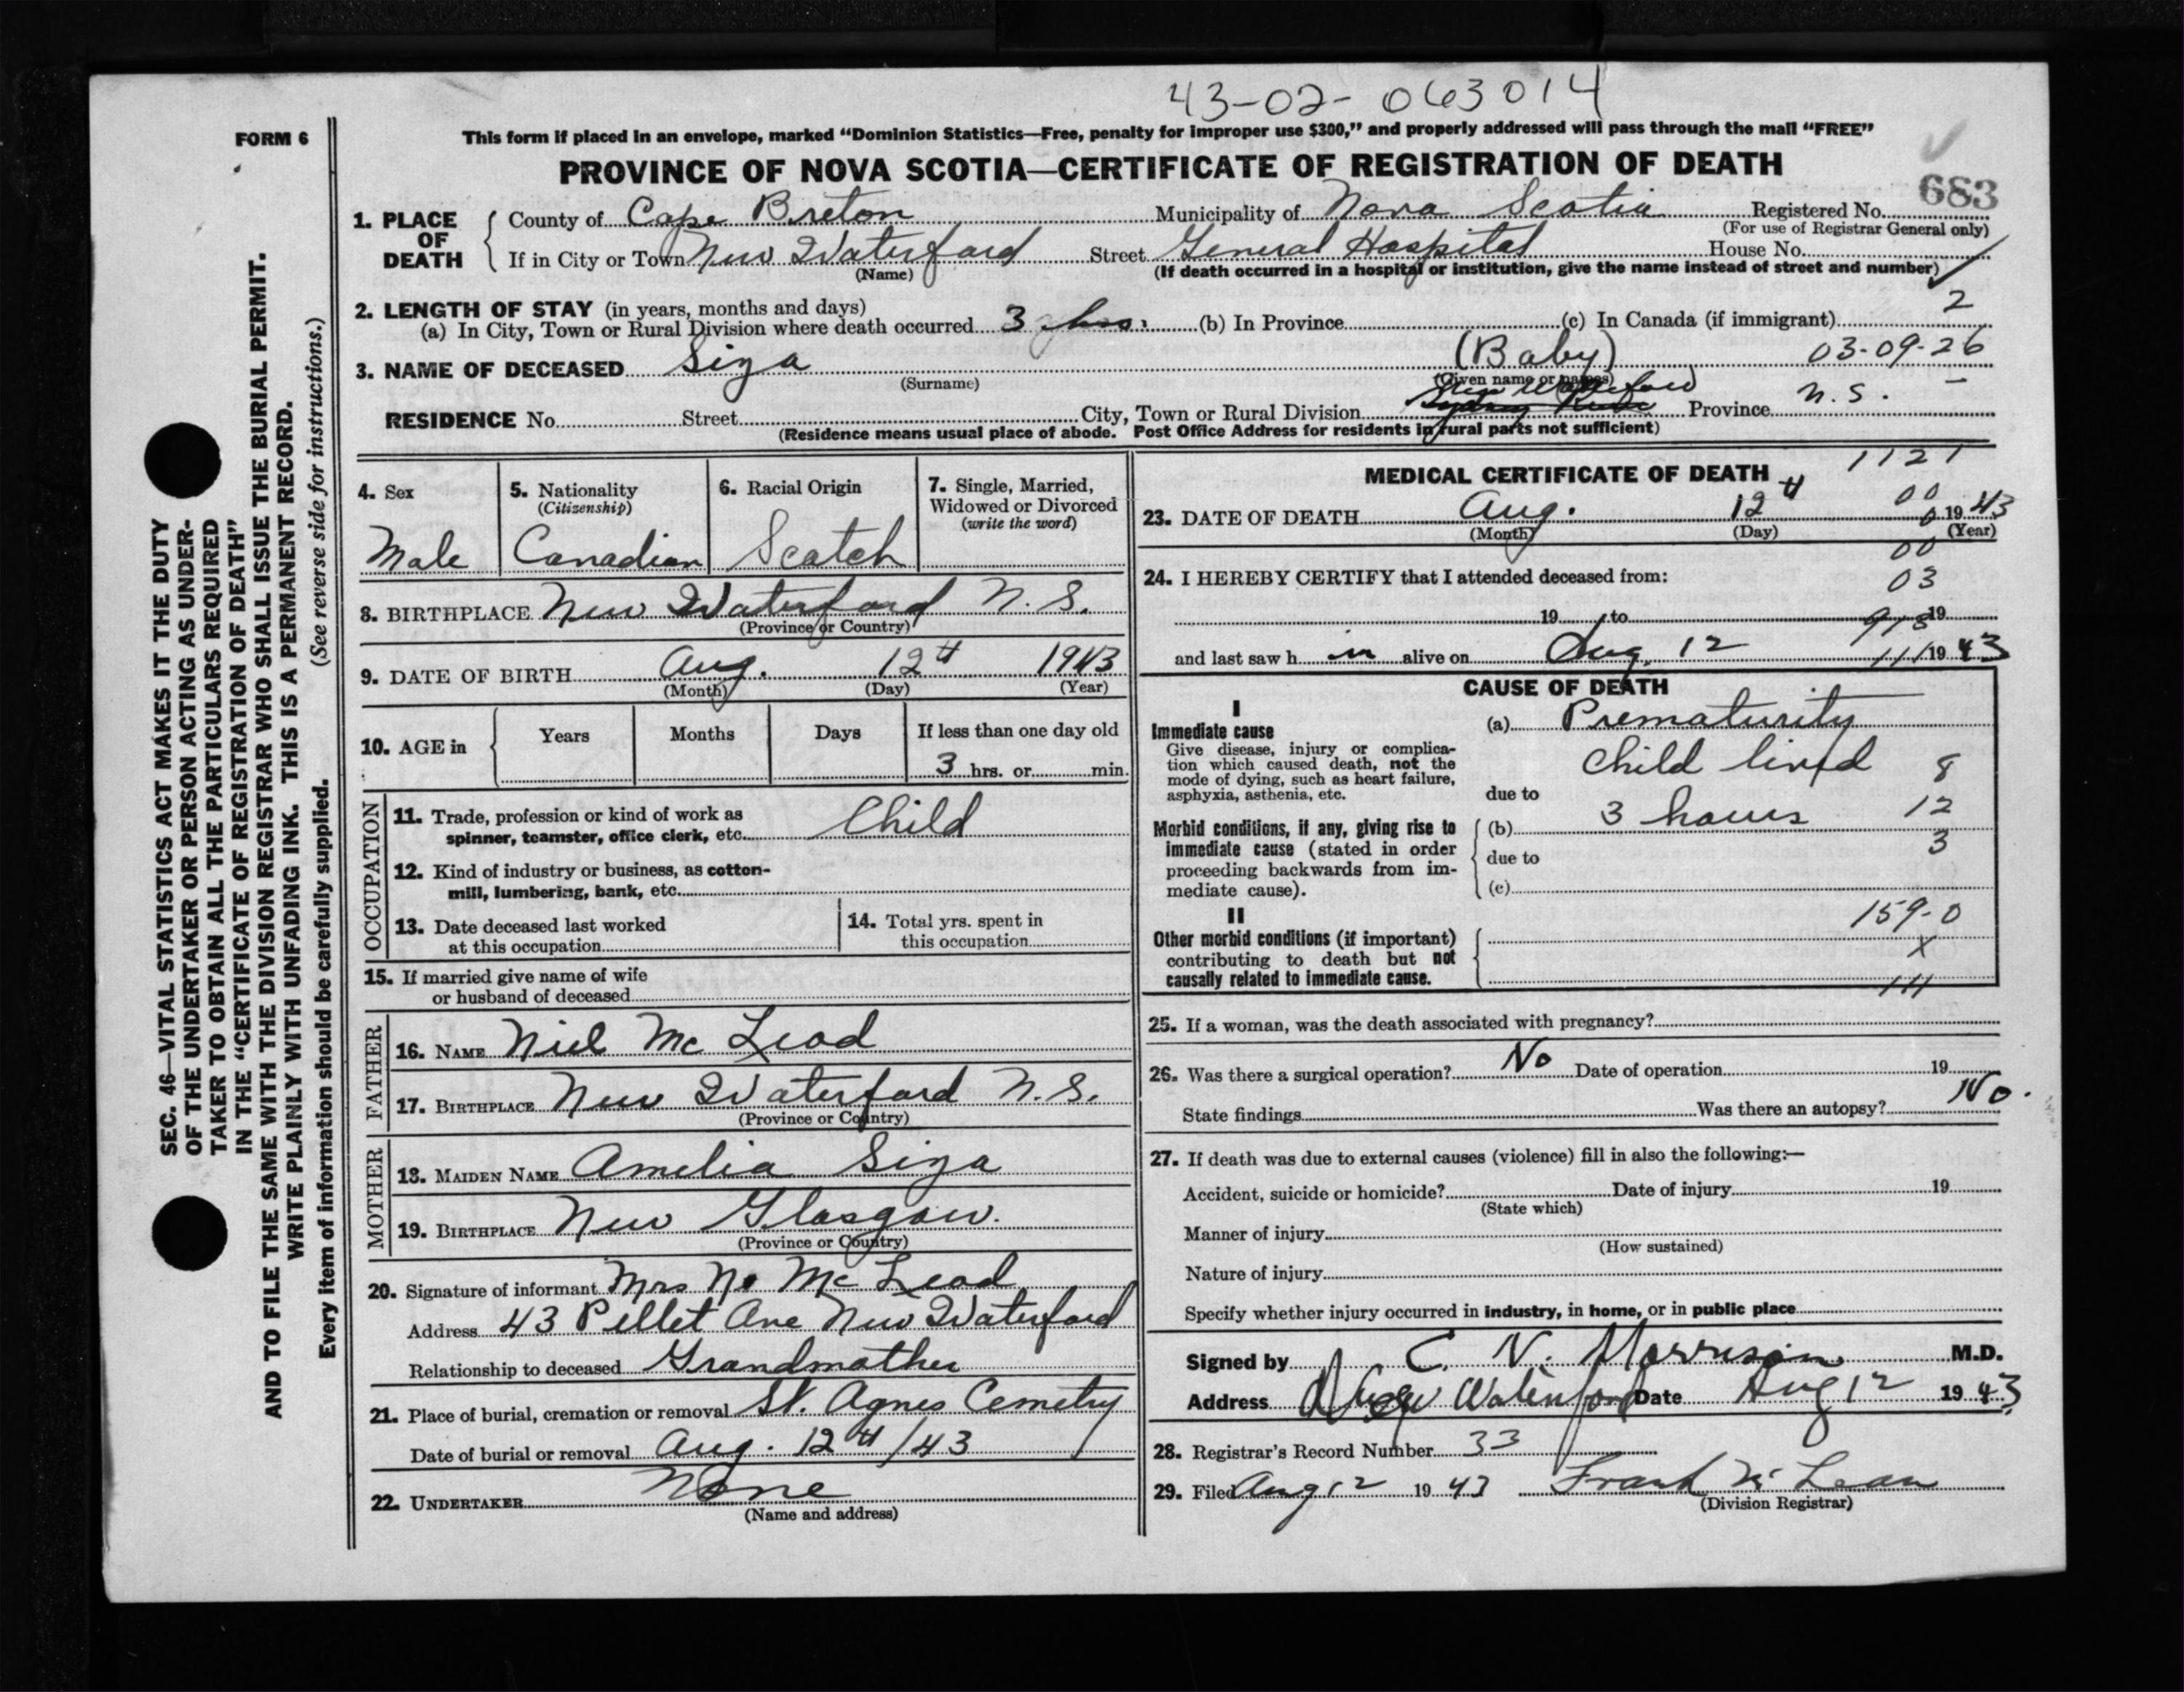 43-02-063014
FORM 6
This form if placed in an envelope, marked “Dominion Statistics—Free, penalty for improper use $300,” and properly addressed will pass through the mail “FREE”
PROVINCE OF NOVA SCOTIA—CERTIFICATE OF REGISTRATION OF DEATH
683
1. PLACE OF DEATH { County of Cape Breton Municipality of Nova Scotia Registered No.
(For use of Registrar General only)
If in City or Town New Waterford Street General Hospital House No.
(Name) (If death occurred in a hospital or institution, give the name instead of street and number)
2. LENGTH OF STAY (in years, months and days) 2
(a) In City, Town or Rural Division where death occurred 3 hrs. (b) In Province (c) In Canada (if immigrant)
3. NAME OF DECEASED Siza (Baby) 03-09-26
(Surname) (Given name or names)
RESIDENCE No. Street City, Town or Rural Division New Waterford Province N.S. –
(Residence means usual place of abode. Post Office Address for residents in rural parts not sufficient)
4. Sex 5. Nationality 6. Racial Origin 7. Single, Married,
(Citizenship) Widowed or Divorced
(write the word)
Male Canadian Scotch
8. BIRTHPLACE New Waterford N.S.
(Province or Country)
9. DATE OF BIRTH Aug. 12th 1943
(Month) (Day) (Year)
10. AGE in { Years Months Days If less than one day old
3 hrs. or min.
OCCUPATION
11. Trade, profession or kind of work as
spinner, teamster, office clerk, etc. Child
12. Kind of industry or business, as cotton-
mill, lumbering, bank, etc.
13. Date deceased last worked 14. Total yrs. spent in
at this occupation this occupation
15. If married give name of wife
or husband of deceased
FATHER
16. NAME Niel Mc Leod
17. BIRTHPLACE New Waterford N.S.
(Province or Country)
MOTHER
18. MAIDEN NAME Amelia Siza
19. BIRTHPLACE New Glasgow.
(Province or Country)
20. Signature of informant Mrs N. Mc Leod
Address 43 Pellet Ave New Waterford
Relationship to deceased Grandmother
21. Place of burial, cremation or removal St. Agnes Cemetry
Date of burial or removal Aug. 12th/43
22. UNDERTAKER None
(Name and address)
MEDICAL CERTIFICATE OF DEATH 1121
00
23. DATE OF DEATH Aug. 12th 1943
(Month) (Day) (Year)
00
24. I HEREBY CERTIFY that I attended deceased from: 03
19 to 19
and last saw h im alive on Aug. 12 1943
CAUSE OF DEATH
I
Immediate cause (a) Prematurity
Give disease, injury or complica-
tion which caused death, not the
mode of dying, such as heart failure,
asphyxia, asthenia, etc.
Child lived 8
due to
Morbid conditions, if any, giving rise to
immediate cause (stated in order
proceeding backwards from im-
mediate cause).
(b) 3 hours 12
due to 3
(c)
II 159-0
Other morbid conditions (if important)
contributing to death but not
causally related to immediate cause.
X
111
25. If a woman, was the death associated with pregnancy?
26. Was there a surgical operation? No Date of operation 19
State findings Was there an autopsy? No.
27. If death was due to external causes (violence) fill in also the following:—
Accident, suicide or homicide? Date of injury 19
(State which)
Manner of injury
(How sustained)
Nature of injury
Specify whether injury occurred in industry, in home, or in public place
Signed by C. N. Morrison M.D.
Address New Waterford Date Aug 12 1943
28. Registrar's Record Number 33
29. Filed Aug 12 1943 Frank Mc Lean
(Division Registrar)
SEC. 46—VITAL STATISTICS ACT MAKES IT THE DUTY
OF THE UNDERTAKER OR PERSON ACTING AS UNDER-
TAKER TO OBTAIN ALL THE PARTICULARS REQUIRED
IN THE “CERTIFICATE OF REGISTRATION OF DEATH”
AND TO FILE THE SAME WITH THE DIVISION REGISTRAR WHO SHALL ISSUE THE BURIAL PERMIT.
WRITE PLAINLY WITH UNFADING INK. THIS IS A PERMANENT RECORD.
Every item of information should be carefully supplied. (See reverse side for instructions.)